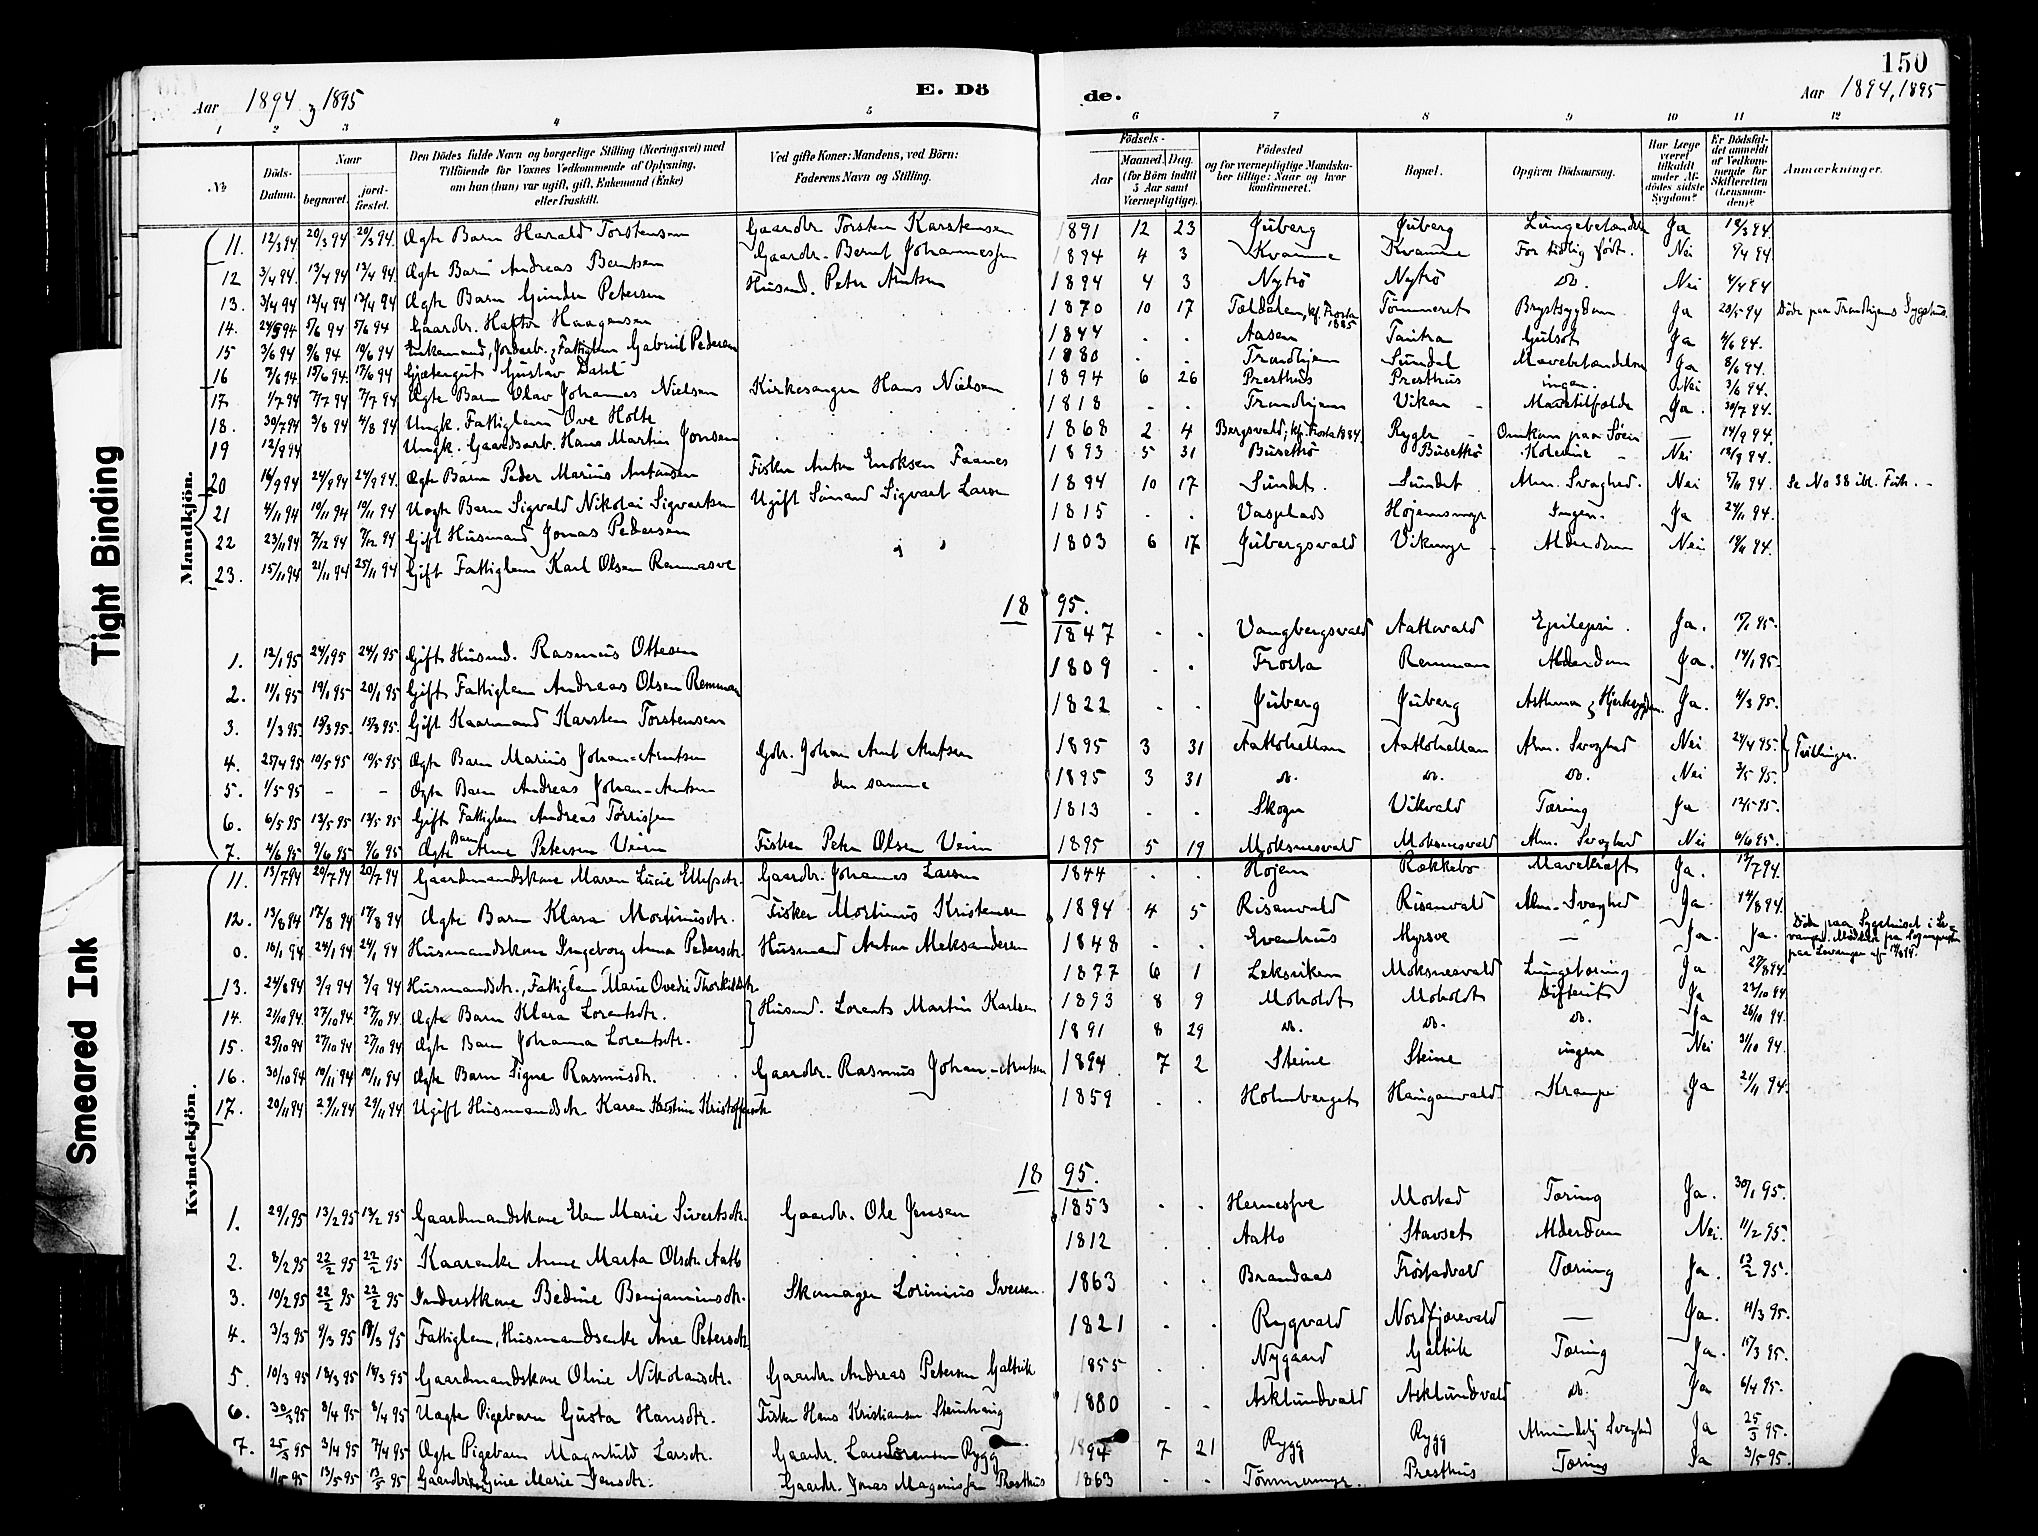 150
Aar 1894 & 1895
E. Dö
de.
Aar 1894, 1895
1 2 3 4 5 6 7 8 9 10 11 12
No
Döds-Datum.
Naar
begravet.
jordfæstet.
Den Dödes fulde Navn og borgerlige Stilling (Næringsvei) med
Tilföiende for Voxnes Vedkommende af Oplysning,
om han (hun) var ugift, gift, Enkemand (Enke)
eller fraskilt.
Ved gifte Koner: Mandens, ved Börn:
Faderens Navn og Stilling.
Födsels-
Aar
Maaned. Dag.
(for Börn indtil
5 Aar samt
Værnepligtige).
Födested
og for værnepligtige Mandskaber tillige: Naar og hvor
konfirmeret.
Bopæl.
Opgiven Dödsaarsag.
Har Læge
været
tilkaldt
under Afdödes sidste
Sygdom?
Er Dödsfaldet anmeldt
af Vedkommende for
Skifteretten
(Lensmanden)?
Anmærkninger.
Mandkjön.
11. 12/3 94 20/3 94 20/3 94. Ægte Barn Harald Torstensen Gaardbr. Torsten Karstensen 1891 12 23 Juberg Juberg Lungebetændelse Ja 18/3 94
12 3/4 94. 13/4 94 13/4 94. Ægte Barn Andreas Berntsen Gaardbr. Bernt Johannessen 1894 4 3 Kvamme Kvamme For tidlig født. Nei 9/4 94
13. 3/4 94 12/4 94 12/4 94 Ægte Barn Gunder Petersen Husmd. Peter Arntsen 1894 4 3 Nytrö Nytrö Do. Nei 4/4 94
14. 24/5 94 5/6 94 5/6 94 Gaardbr. Haftor Haagensen 1870 10 17 Toldalen, kf. Frosta 1885 Tömmeret Brystsygdom Ja 20/5 94 Döde paa Trondhjems Sygehus.
15 3/6 94 9/6 94 10/6 94 Enkemand, Jordarb. & Fattiglem Gabriel Pedersen 1844 . . Aasen Tautra Gulsot Ja 4/6 94.
16 7/6 94. 15/6 94. 17/6 94 Gjætergut Gustav Dahl 1880 . . Trondhjem Sundal Mavebetændelse Ja 8/6 94.
17. 1/7 94 7/7 94 7/7 94 Ægte Barn Olav Johannes Nielsen Kirkesanger Hans Nielsen 1894 6 26 Presthus Presthus ingen. Nei 3/6 94.
18. 30/7 94 3/8 94 4/8 94 Ungk. Fattiglem Ove Holte 1818 . . Trondhjem Vikan Mavetilfælde Ja. 30/7 94.
19 12/9 94 Ungk. Gaardsarb. Hans Martin Jonsen 1868 2 4 Bergsvald; kf. Frosta 1884. Rygbr Omkom paa Söen — 14/9 94.
20 16/9 94 24/9 94 24/9 94 Ægte Barn Peder Marius Antonsen Fisker Anton Enoksen Faanes 1893 5 31 Busettrö Busettrö Kolerine Nei 18/9 94.
21 4/11 94 10/11 94 10/11 94 Uægte Barn Sigvald Nikolai Sigvartsen Ugift Sömand Sigvart Larsen 1894 10 17 Sundet. Sundet Alm. Svaghed. Nei 5/11 94. Se No 38 ibl. Födte.
22 23/11 94 7/12 94 7/12 94 Gift Husmand Jonas Pedersen 1815 . . Vasplads Höjemsmyr Ingen. Ja 24/11 94.
23. 15/11 94 21/11 94 25/11 94 Gift Fattiglem Karl Olsen Remmasve 1803 6 17 Jubergsvald Vikmyr Alderdom Nei 19/11 94.
18 95.
1. 12/1 95 24/1 95 24/1 95 Gift Husmd. Rasmus Ottesen 1847 . . Vangbergsvald Aattovald Epilepsi. Ja. 15/1 95.
2. 11/1 95 19/1 95 20/1 95 Gift Fattiglem Andreas Olsen Remman 1809 . . Frosta Remman Alderdom Ja. 14/1 95.
3. 1/3 95 13/3 95. 13/3 95. Gift Kaarmand Karsten Torstensen 1822 . . Juberg Juberg Asthma & Hjertesygdom. Ja. 4/3 95.
4. 25/4 95 10/5 95 10/5 95 Ægte Barn Marius Johan-Arntsen Gbr. Johan Arnt Arntsen 1895 3 31 Aattohellan Aattohellan Alm. Svaghed Nei 29/4 95. Tvillinger.
5. 1/5 95 — — Ægte Barn Andreas Johan-Arntsen den samme 1895 3 31 do. do. do. Nei 3/5 95.
6. 6/5 95 13/5 95 13/5 95. Gift Fattiglem Andreas Torrissen 1813 . . Skogn Vikvald Tæring Ja 12/5 95.
7. 4/6 95 9/6 95 9/6 95 Ægte Barn Arne Petersen Veim Fisker Peter Olsen Veim 1895 5 19 Moksnesvald Moksnesvald Alm. Svaghed Nei 6/6 95.
Kvindekjön.
11. 13/7 94 20/7 94 20/7 94 Gaardmandskone Maren Lucie Ellefsdtr. Gaardbr. Johannes Larsen 1844 . . Höjem Rækkebo Mavekræft Ja. 17/7 94.
12. 13/8 94 17/8 94 17/8 94 Ægte Barn Klara Mortinusdtr. Fisker Mortinus Kristensen 1894 4 5 Risanvald Risanvald Alm. Svaghed Ja. 14/8 94.
0. 16/1 94 24/1 94 24/1 94 Husmandskone Ingeborg Anna Pedersdtr. Husmand Anton Aleksandersen 1848 . . Evenhus Myrsve — Ja. Ja. Döde paa Sygehuset i Levanger.
13. 24/8 94 3/9 94 3/9 94 Husmandsdtr., Fattiglem Marie Ovedie Thorkildsdtr. 1877 6 1 Leksviken Moksnesvald Lungetæring Ja 27/8 94.
14. 21/10 94 27/10 94. 27/10 94. Ægte Barn Klara Lorentsdtr. Husmd. Lorents Martin Karlsen 1893 8 9 Moholdt Moholdt Difterit Ja 23/10 94
15. 25/10 94 27/10 94 27/10 94 Ægte Barn Johanna Lorentsdtr. 1891 8 29 do. do. do. Ja 26/10 94.
16. 30/10 94 10/11 94 10/11 94 Ægte Barn Signe Rasmusdtr. Gaardbr. Rasmus Johan-Arntsen 1894 7 2 Steine Steine ingen Nei 31/10 94.
17. 20/11 94 29/11 94 29/11 94 Ugift Husmandsdtr. Karen Katrine Kristoffersdtr. 1859 . . Holmberget Hauganvald Krampe Ja 21/11 94.
18 95.
1. 29/1 95 13/2 95 13/2 95 Gaardmandskone Elen Marie Sivertsdtr. Gaardbr. Ole Jensen 1853 . . Hernessve Mostad Tæring Ja. 30/1 95.
2. 8/2 95 22/2 95 22/2 95 Kaarenke Anne Marta Olsdtr. Aatto 1812 . . Aatto Stavset Alderdom Nei. 11/2 95.
3. 10/2 95 22/2 95 22/2 95 Inderstkone Bedine Benjaminsdtr. Skomager Lorinius Iversen. 1863 . . Brandaas Fröstadvald Tæring Ja. 13/2 95.
4. 3/3 95 9/3 95 10/3 95 Fattiglem, Husmandsenke Ane Petersdtr. 1821 . . Rygvald Nordfjærevald — Ja. 11/3 95.
5 10/3 95 18/3 95 18/3 95 Gaardmandskone Oline Nikolaisdtr. Gaardbr. Andreas Petersen Galtvik 1855 . . Nygaard Galtvik Tæring Ja. 15/3 95.
6. 30/3 95 8/4 95 8/4 95 Uægte Pigebarn Gusta Hansdtr. Fisker Hans Kristiansen Steinhaug 1880 . . Asklundvald Asklundvald do. Ja 6/4 95.
7. 25/3 95 3/4 95 7/4 95 Ægte Pigebarn Magnhild Larsdtr. Gaardbr. Lars Lorensen Rygg 1894 7 21 Rygg Rygg Almindelig Svaghed Ja 25/3 95.
1/5 95 13/5 95 13/5 95 Gaardbr.kone Gine Marie Jensdtr. Gaardbr. Jonas Magnussen Presthus 1863 . . Tömmermyr. Presthus Tæring Ja 3/5 95.
Tight Binding
Smeared Ink